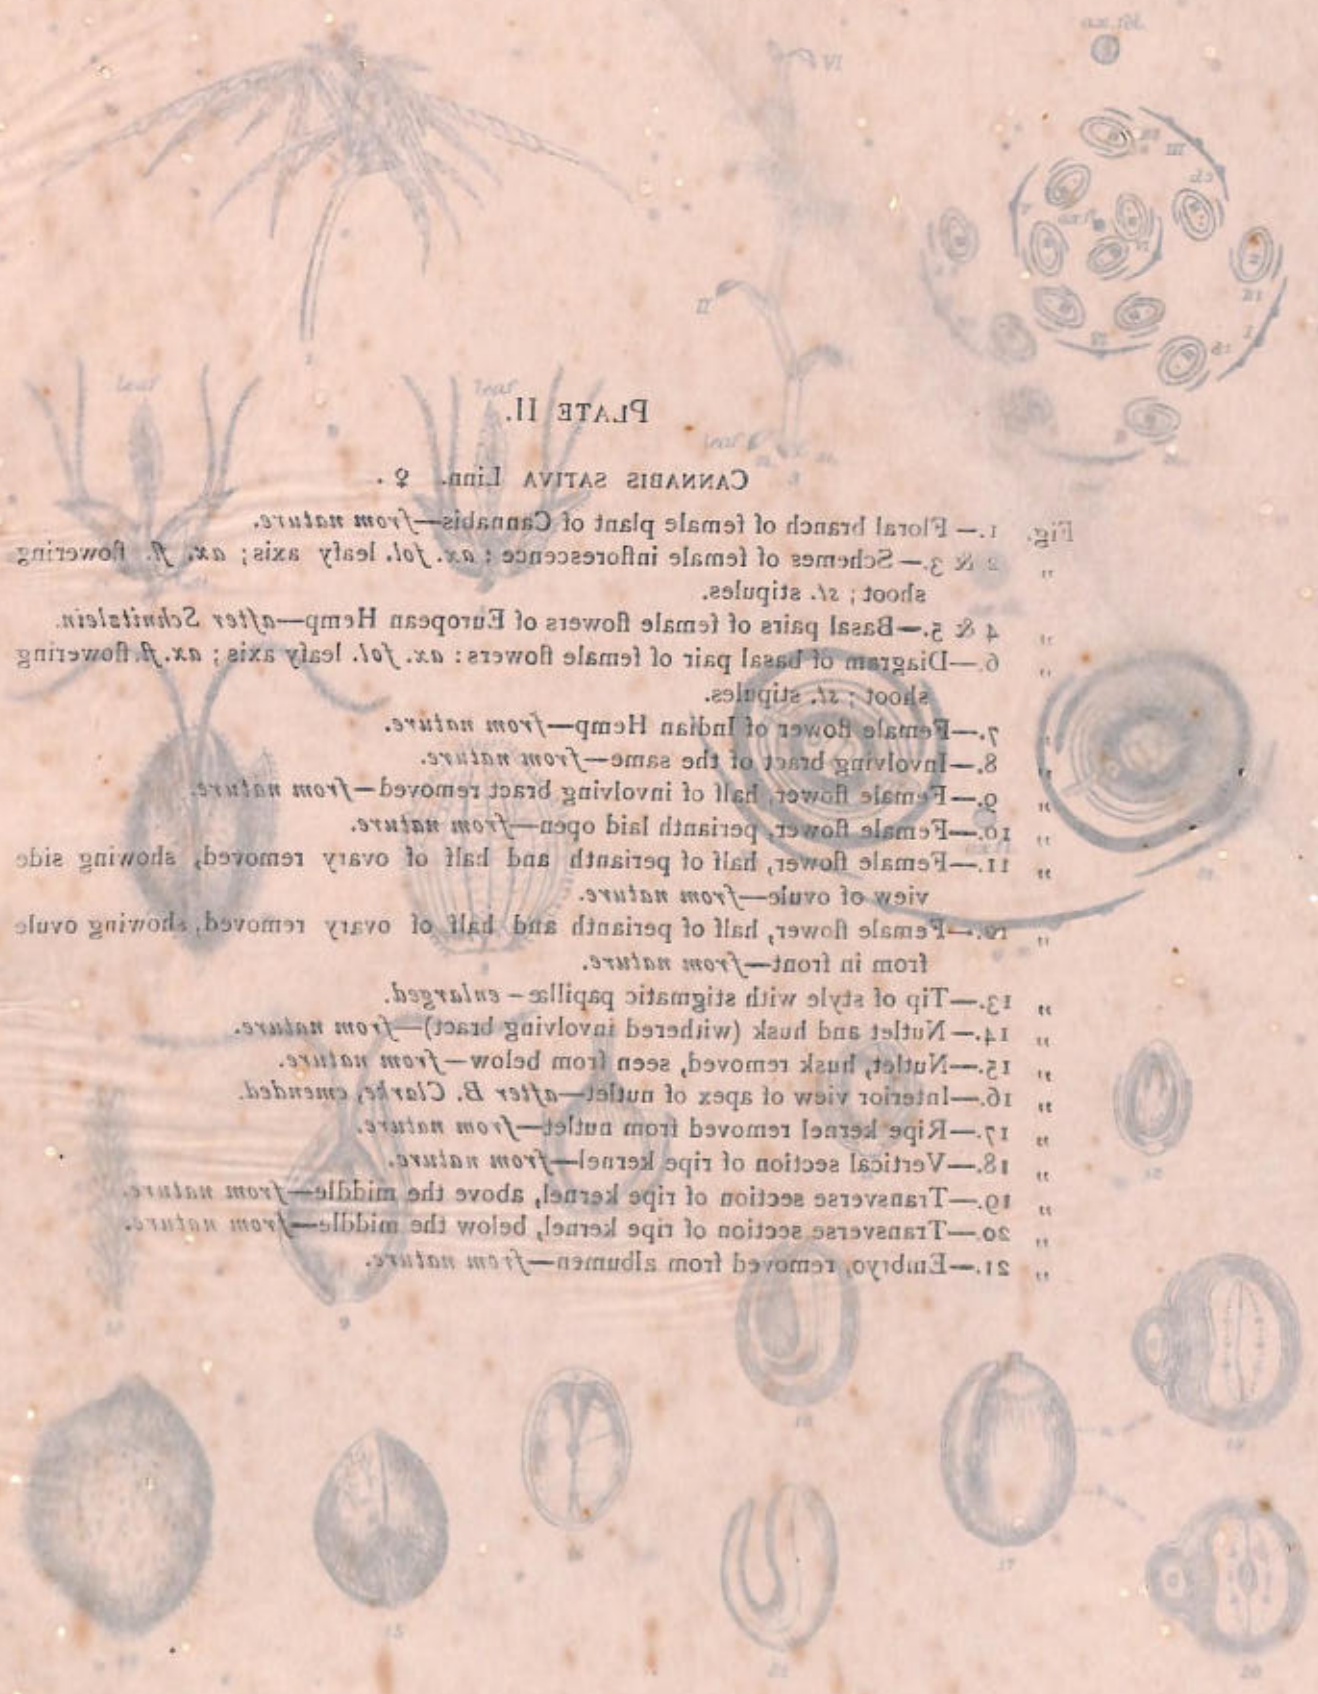 PLATE II.
CANNABIS SATIVA Linn. ♀.
Fig. 1.—Floral branch of female plant of Cannabis—from nature.
„ 2 & 3.—Schemes of female inflorescence: ax. fol. leafy axis; ax. fl. flowering
shoot; st. stipules.
„ 4 & 5.—Basal pairs of female flowers of European Hemp—after Schnitzlein.
„ 6.—Diagram of basal pair of female flowers: ax. fol. leafy axis; ax. fl. flowering
shoot; st. stipules.
„ 7.—Female flower of Indian Hemp—from nature.
„ 8.—Involving bract of the same—from nature.
„ 9.—Female flower, half of involving bract removed—from nature.
„ 10.—Female flower, perianth laid open—from nature.
„ 11.—Female flower, half of perianth and half of ovary removed, showing side
view of ovule—from nature.
„ Female flower, half of perianth and half of ovary removed, showing ovule
from in front—from nature.
„ 13.—Tip of style with stigmatic papillæ—enlarged.
„ 14.—Nutlet and husk (withered involving bract)—from nature.
„ 15.—Nutlet, husk removed, seen from below—from nature.
„ 16.—Interior view of apex of nutlet—after B. Clarke, emended.
„ 17.—Ripe kernel removed from nutlet—from nature.
„ 18.—Vertical section of ripe kernel—from nature.
„ 19.—Transverse section of ripe kernel, above the middle—from nature.
„ 20.—Transverse section of ripe kernel, below the middle—from nature.
„ 21.—Embryo, removed from albumen—from nature.
IV
II
III
leaf
leaf
9
15
17
20